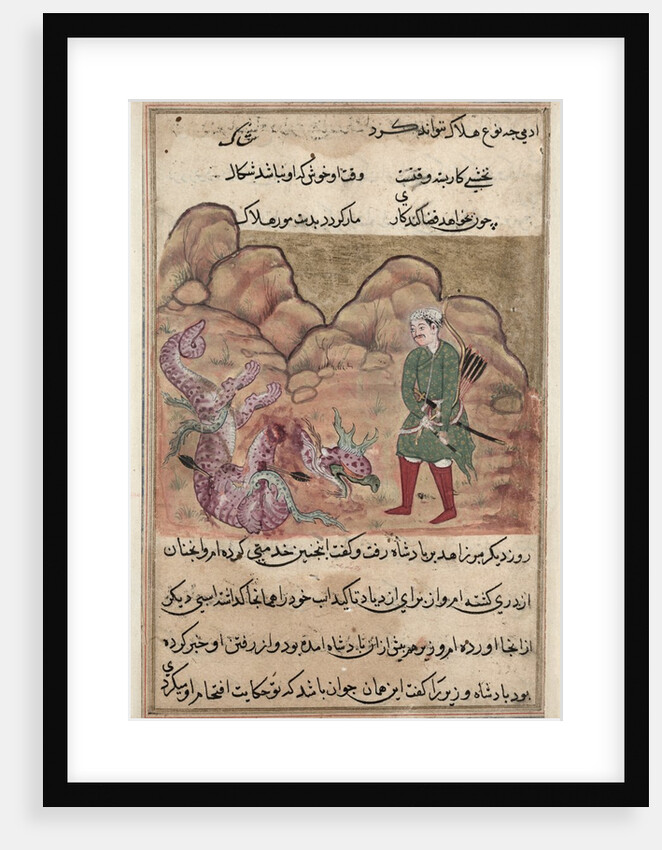 ادمی چه نوع هلاک تواند کرد
نخشبی کار بسته وقتست وقت او خوش که او نباشد شکال
چون بخواهد قضا کند کاری مار کردد بدست مور هلاک
روز دیکر میرزاهد بر پادشاه رفت و کفت اینچنین خدمتی کرده ام و انچنان
ازدری کشته ام و از برای ازدیاد تاکید اسب خود را همانجا کذاشته اسپی دیکر
از انجا اورده ام وزیر هم پیش ازان پادشاه امده بود و از رفتن او خبر کرده
بود پادشاه وزیر را کفت این همان جوان باشد که تو حکایت افتحام او میکردی